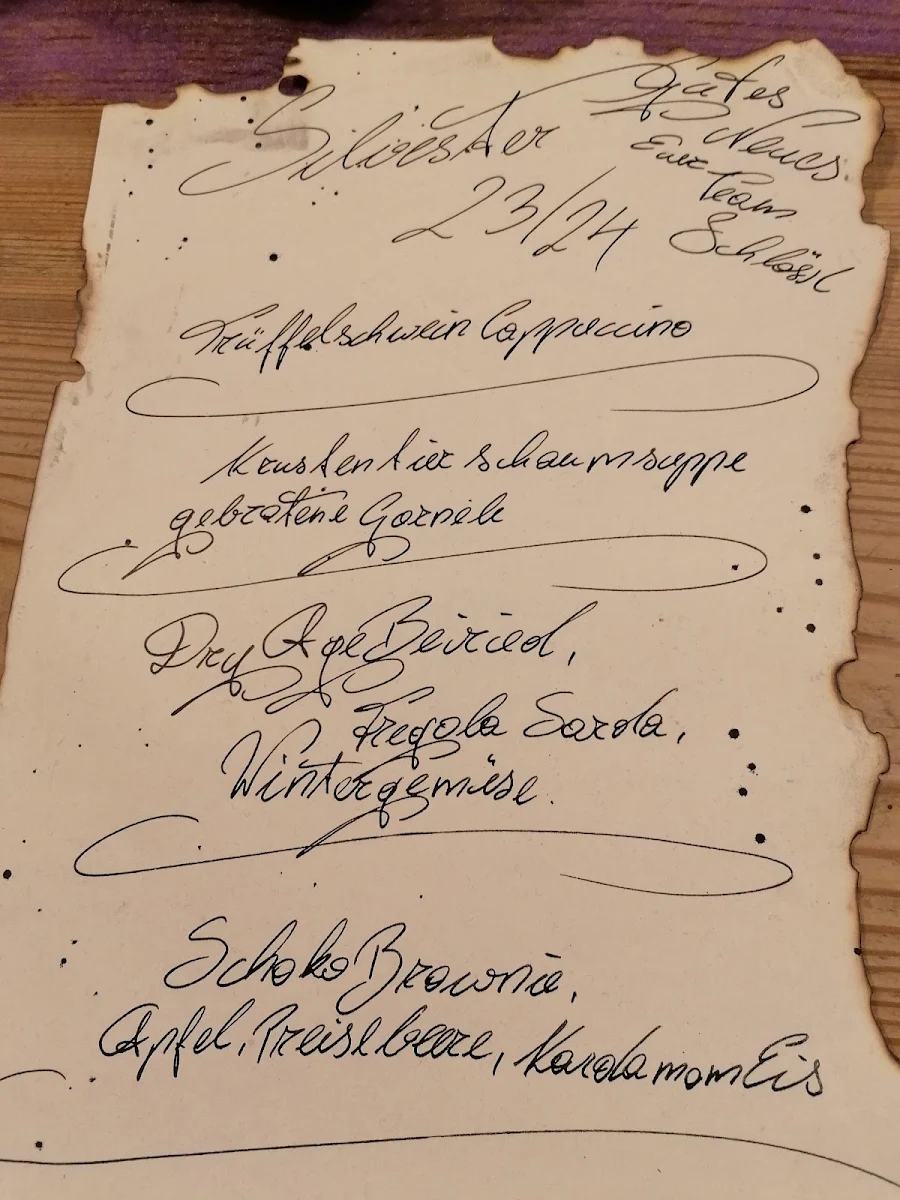 Silvester
23/24
Gutes
Neues
Euer
Team
Schlössl
Trüffelschwein Cappuccino
Krustentierschaumsuppe
gebratene Garnele
Dry Age Beiried,
Fregola Sarda,
Wintergemüse.
Schoko Brownie,
Apfel, Preiselbeere, Kardamom Eis